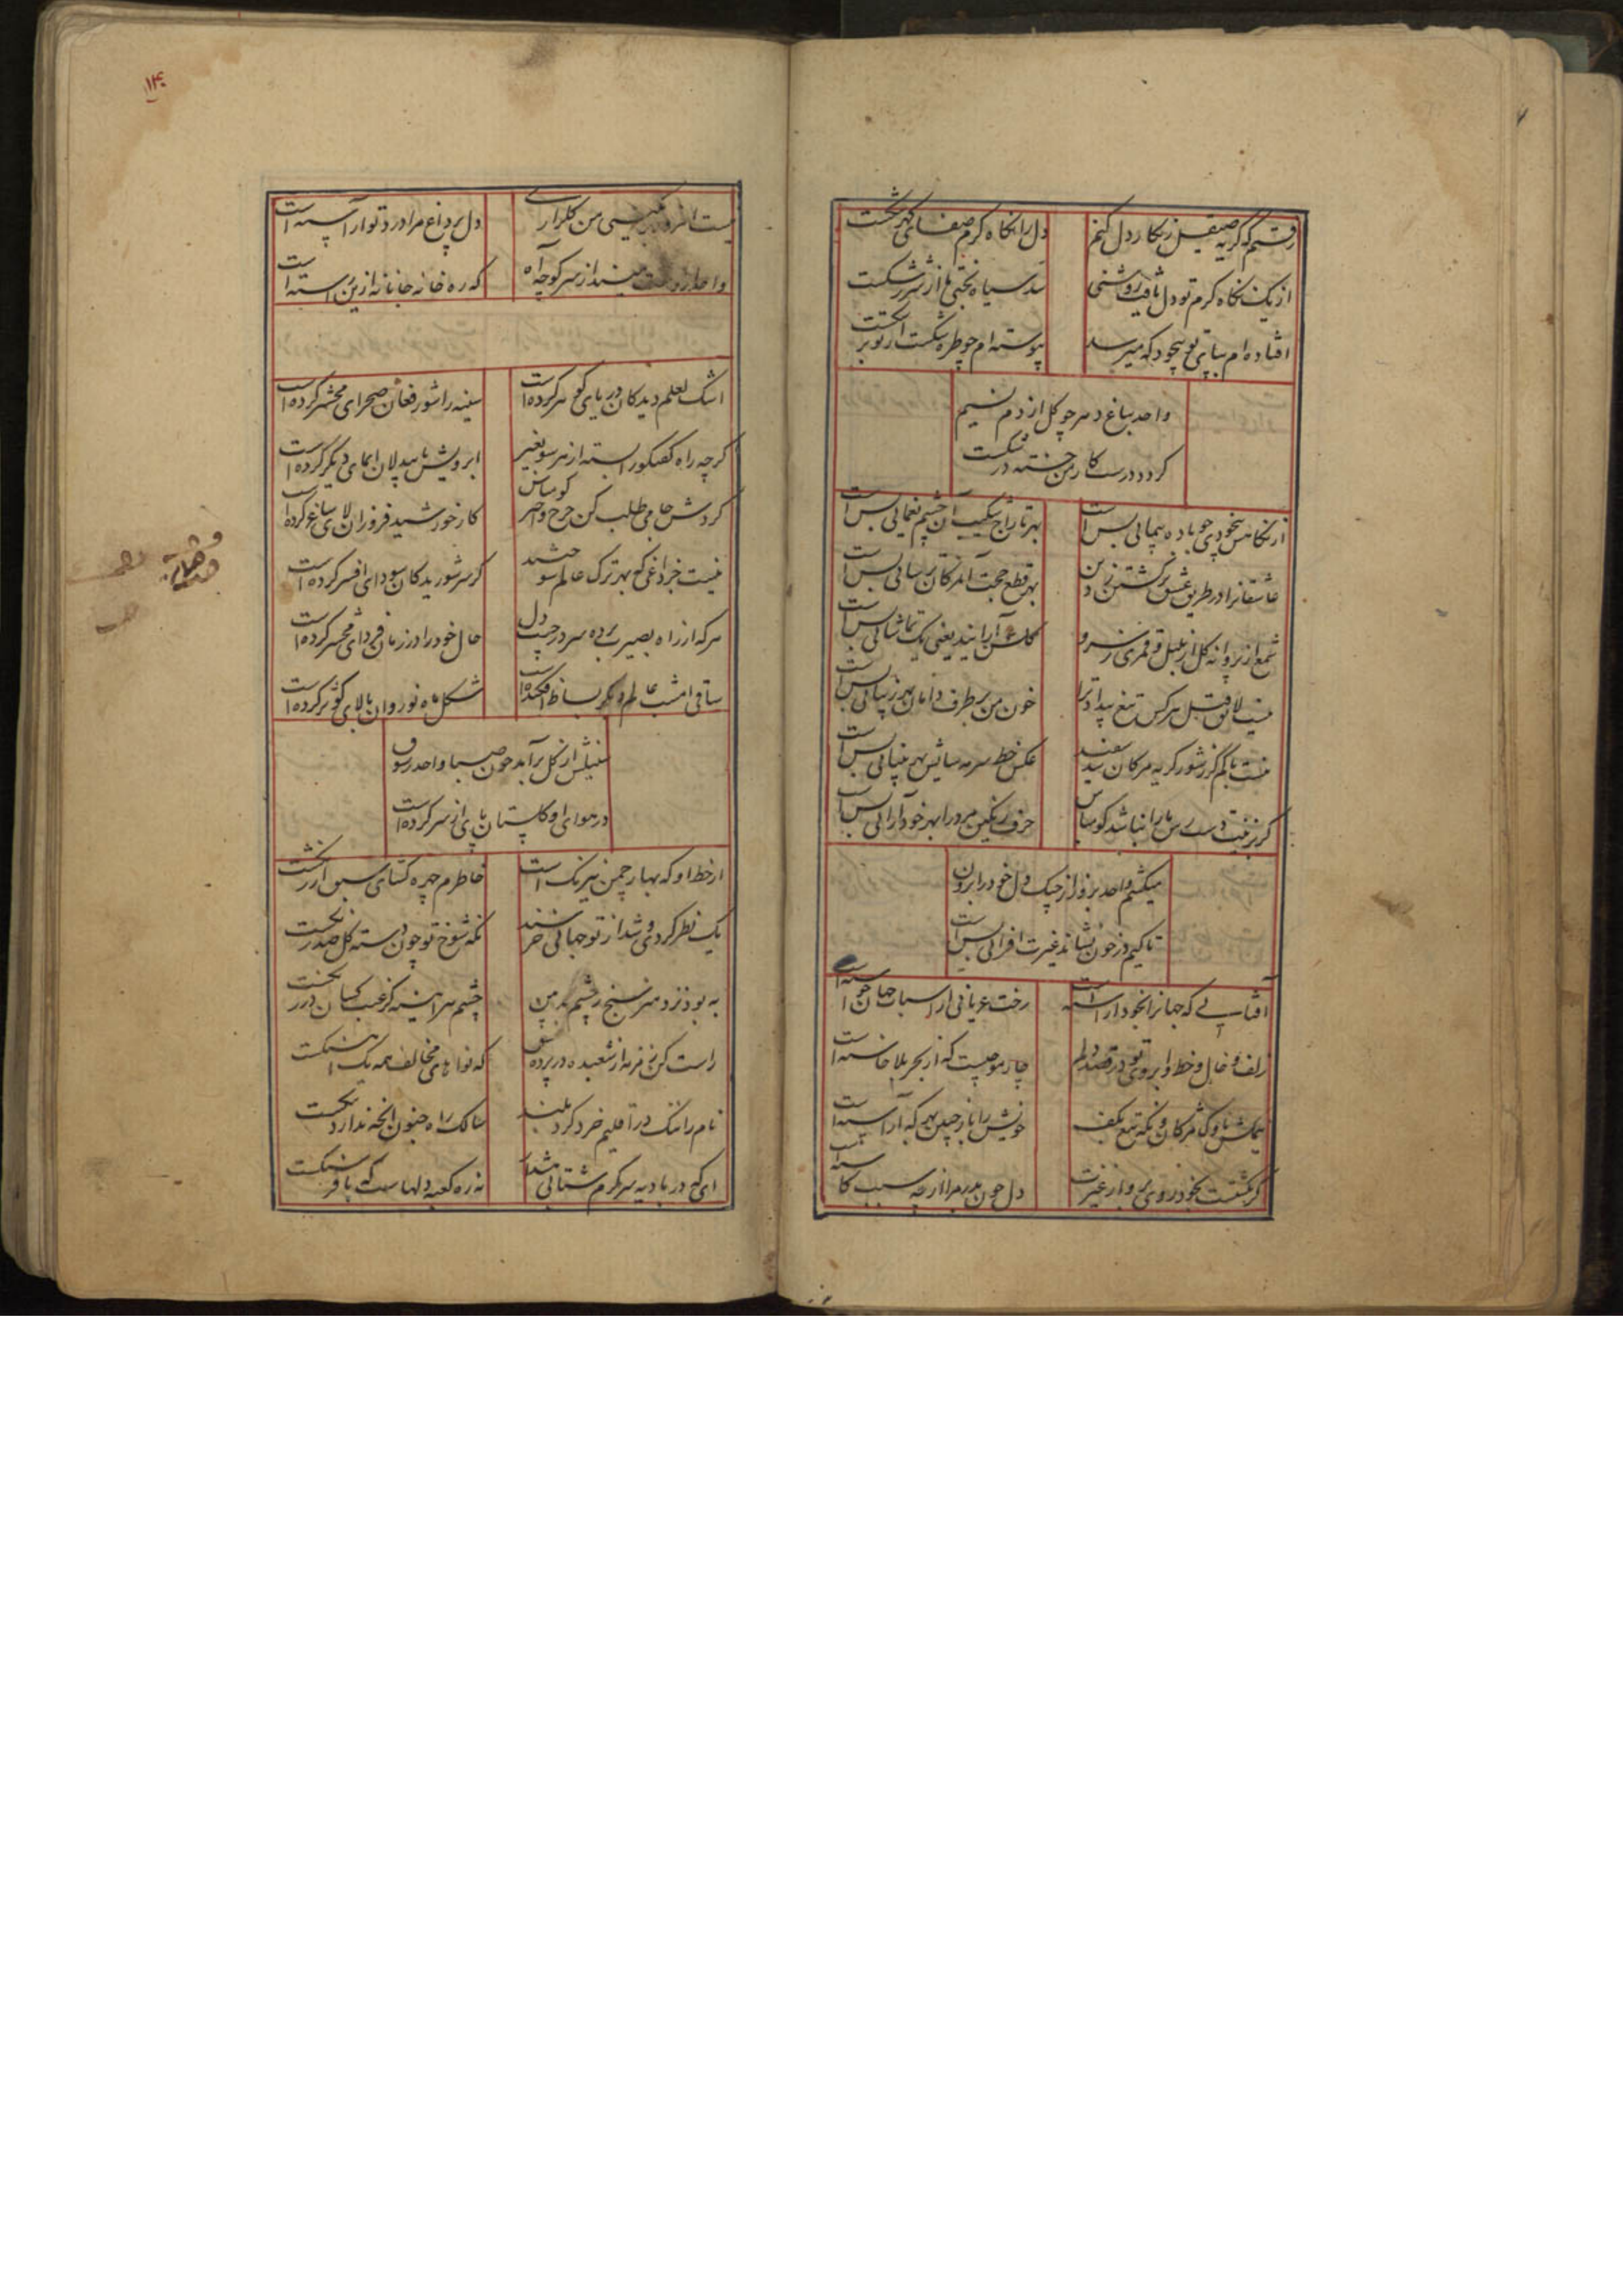 رفتم که گریه صیقل زنگار دل کنم
دل را نگاه گرم صفای گهر شکست
از یک نگاه گرم تو دل یافت روشنی
سد سیاه بختی ما از شرر شکست
افتاده‌ام بپای تو بیخود که میرسد
پیوسته‌ام چو طره شکست از تو بر
واحد بباغ دهر چو گل از دم نسیم
گردد درست کار من خسته در شکست
از نگاهش بیخودی چو باده پیمائی بس است
بهر تاراج شکیب آن چشم یغمائی بس است
عاشقانرا در طریق عشق برگشتن ز دین
بهر قطع حجت آن مژگان برسائی بس است
شمع از پروانه گل از بلبل و قمری ز سرو
گلشن آرایند یعنی یک تماشائی بس است
نیست لایق قتل هر کس تیغ بیداد ترا
خون من بر طرف دامان بهر زیبائی بس است
نیست باکم گر ز شور گریه مژگان شد سفید
عکس خط سرمه سایش بهر بینائی بس است
گر بزلفت دست رس ما را نباشد گو مباش
حرف رنگین مر ورا بهر خودآرائی بس است
میکشم واحد بزور از چنگ دل خود را برون
تا کیم در خون نشاند غیرت افزائی بس است
آفتابی که جهانرا بخود آراسته است
رخت عریانی از اسباب جهان خواسته است
زلف و خال و خط و ابروی تو در قصد دلم
چار موجیست که از بحر بلا خاسته است
بکفش ناوک مژگان و نگه تیغ بکف
خویش را باز چنین بهر که آراسته است
گر نگشتست بخود روی برو از غیرت
دل چون بدر مرا از چه سبب کاسته است
۱۴۰
نیست افزو من گلزاری
دل پرداغ مرا درد تو آراسته است
واحد از سر کوچه آه
که ره خانه جانانه ازین راسته است
اشک لعلم دیدگان دریای گوهر کرده است
سینه را شور فغان صحرای محشر کرده است
گرچه راه گفتگو را بسته از هر سو بغیر
ابرویش با بیدلان ایمای دیگر کرده است
گردش جامی طلب کن چرخ و اختر گو مباش
کار خورشید فروزان لای ساغر کرده است
نیست جز داغی که بهر ترک عالم سوختند
گر سر شوریدگان سودای افسر کرده است
هر که از راه بصیرت برده سر در جیب دل
حال خود را در زمان فردای محشر کرده است
ساقی امشب عالم دیگر بساط افکنده است
شکل ماه نو روان بالای کوثر کرده است
سنبلش از گل برآید چون صبا واحد رسوق
در هوای او گلستان پای از سر کرده است
از خط او که بهار چمن نیرنگ است
خاطرم چهره گشای سبق ارژنگست
یک نظر کردی و شد از تو جهانی خرسند
نگه شوخ تو چون دسته گل صد رنگست
به بود نزد هنر سنج ز چشم بد بین
چشم هر آینه کز عیب کسان در زنگست
راست کن زمزمه از شعبده در پرده عشق
که نواهای مخالف همه یک آهنگست
نام را ننگ در اقلیم خرد کرد بلند
سالک راه جنون آنچه ندارد ننگست
ای که در بادیه سرگرم شتابی شده
نه ره کعبه دلهاست که پا فرسنگست